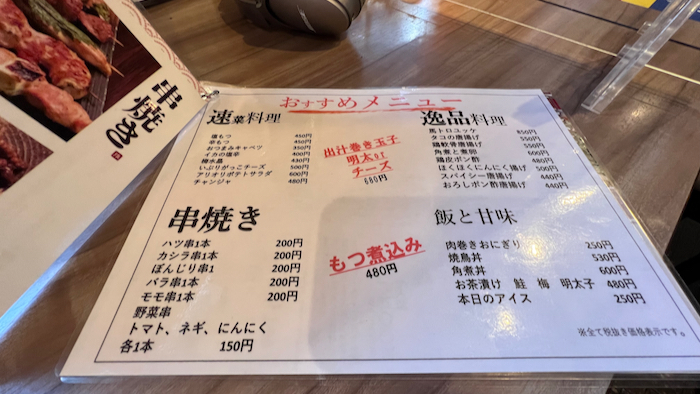 串焼き
おすすめメニュー
速菜料理
塩もつ 450円
辛もつ 450円
おつまみキャベツ 350円
イカの塩辛 400円
梅水晶 430円
いぶりがっこチーズ 500円
アリオリポテトサラダ 600円
チャンジャ 480円
出汁巻き玉子
明太or
チーズ
680円
逸品料理
馬トロユッケ 850円
タコの唐揚げ 550円
鶏軟骨唐揚げ 550円
角煮と煮卵 600円
鶏皮ポン酢 480円
ほくほくにんにく揚げ 500円
スパイシー唐揚げ 440円
おろしポン酢唐揚げ 440円
串焼き
ハツ串1本 200円
カシラ串1本 200円
ぼんじり串1 200円
バラ串1本 200円
モモ串1本 200円
野菜串
トマト、ネギ、にんにく
各1本 150円
もつ煮込み
480円
飯と甘味
肉巻きおにぎり 250円
焼鳥丼 530円
角煮丼 600円
お茶漬け 鮭 梅 明太子 480円
本日のアイス 250円
※全て税抜き価格表示です。